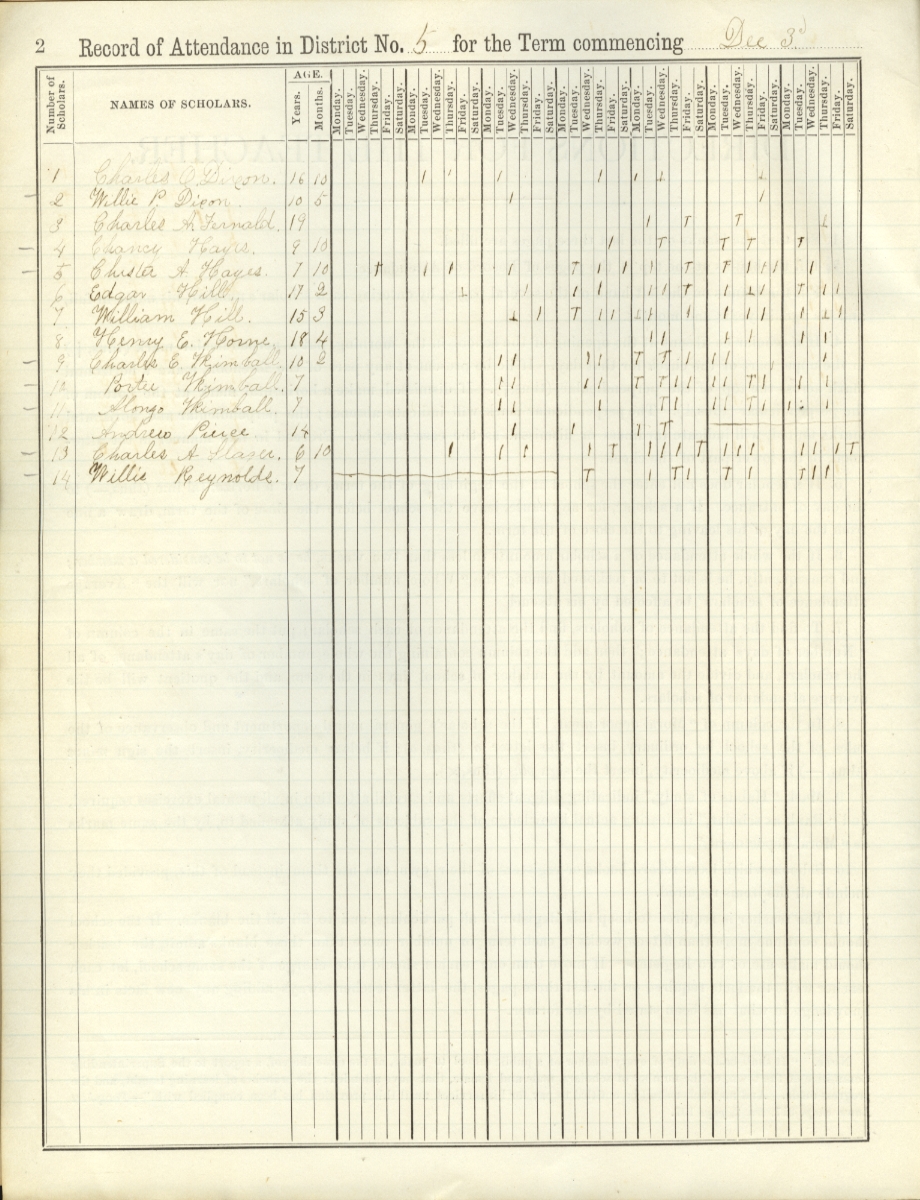 2 Record of Attendance in District No. 5 for the Term commencing Dec 3d
Number of Scholars. NAMES OF SCHOLARS. AGE. Years. Months. Monday. Tuesday. Wednesday. Thursday. Friday. Saturday. Monday. Tuesday. Wednesday. Thursday. Friday. Saturday. Monday. Tuesday. Wednesday. Thursday. Friday. Saturday. Monday. Tuesday. Wednesday. Thursday. Friday. Saturday. Monday. Tuesday. Wednesday. Thursday. Friday. Saturday. Monday. Tuesday. Wednesday. Thursday. Friday. Saturday. Monday. Tuesday. Wednesday. Thursday. Friday. Saturday.
1 Charles O. Dixon. 16 10
2 Willie P. Dixon. 10 5
3 Charles A. Fernald. 19
4 Chancy Hayes. 9 10
5 Chister A Hayes. 7 10
6 Edgar Hill. 17 2
7 William Hill. 15 3
8 Henry E. Horne. 18 4
9 Charles E. Kimball. 10 2
10 Porter Kimball. 7
11 Alonzo Kimball. 7
12 Andrew Pierce. 14
13 Charles A 6 10
14 Willie Reynolds. 7